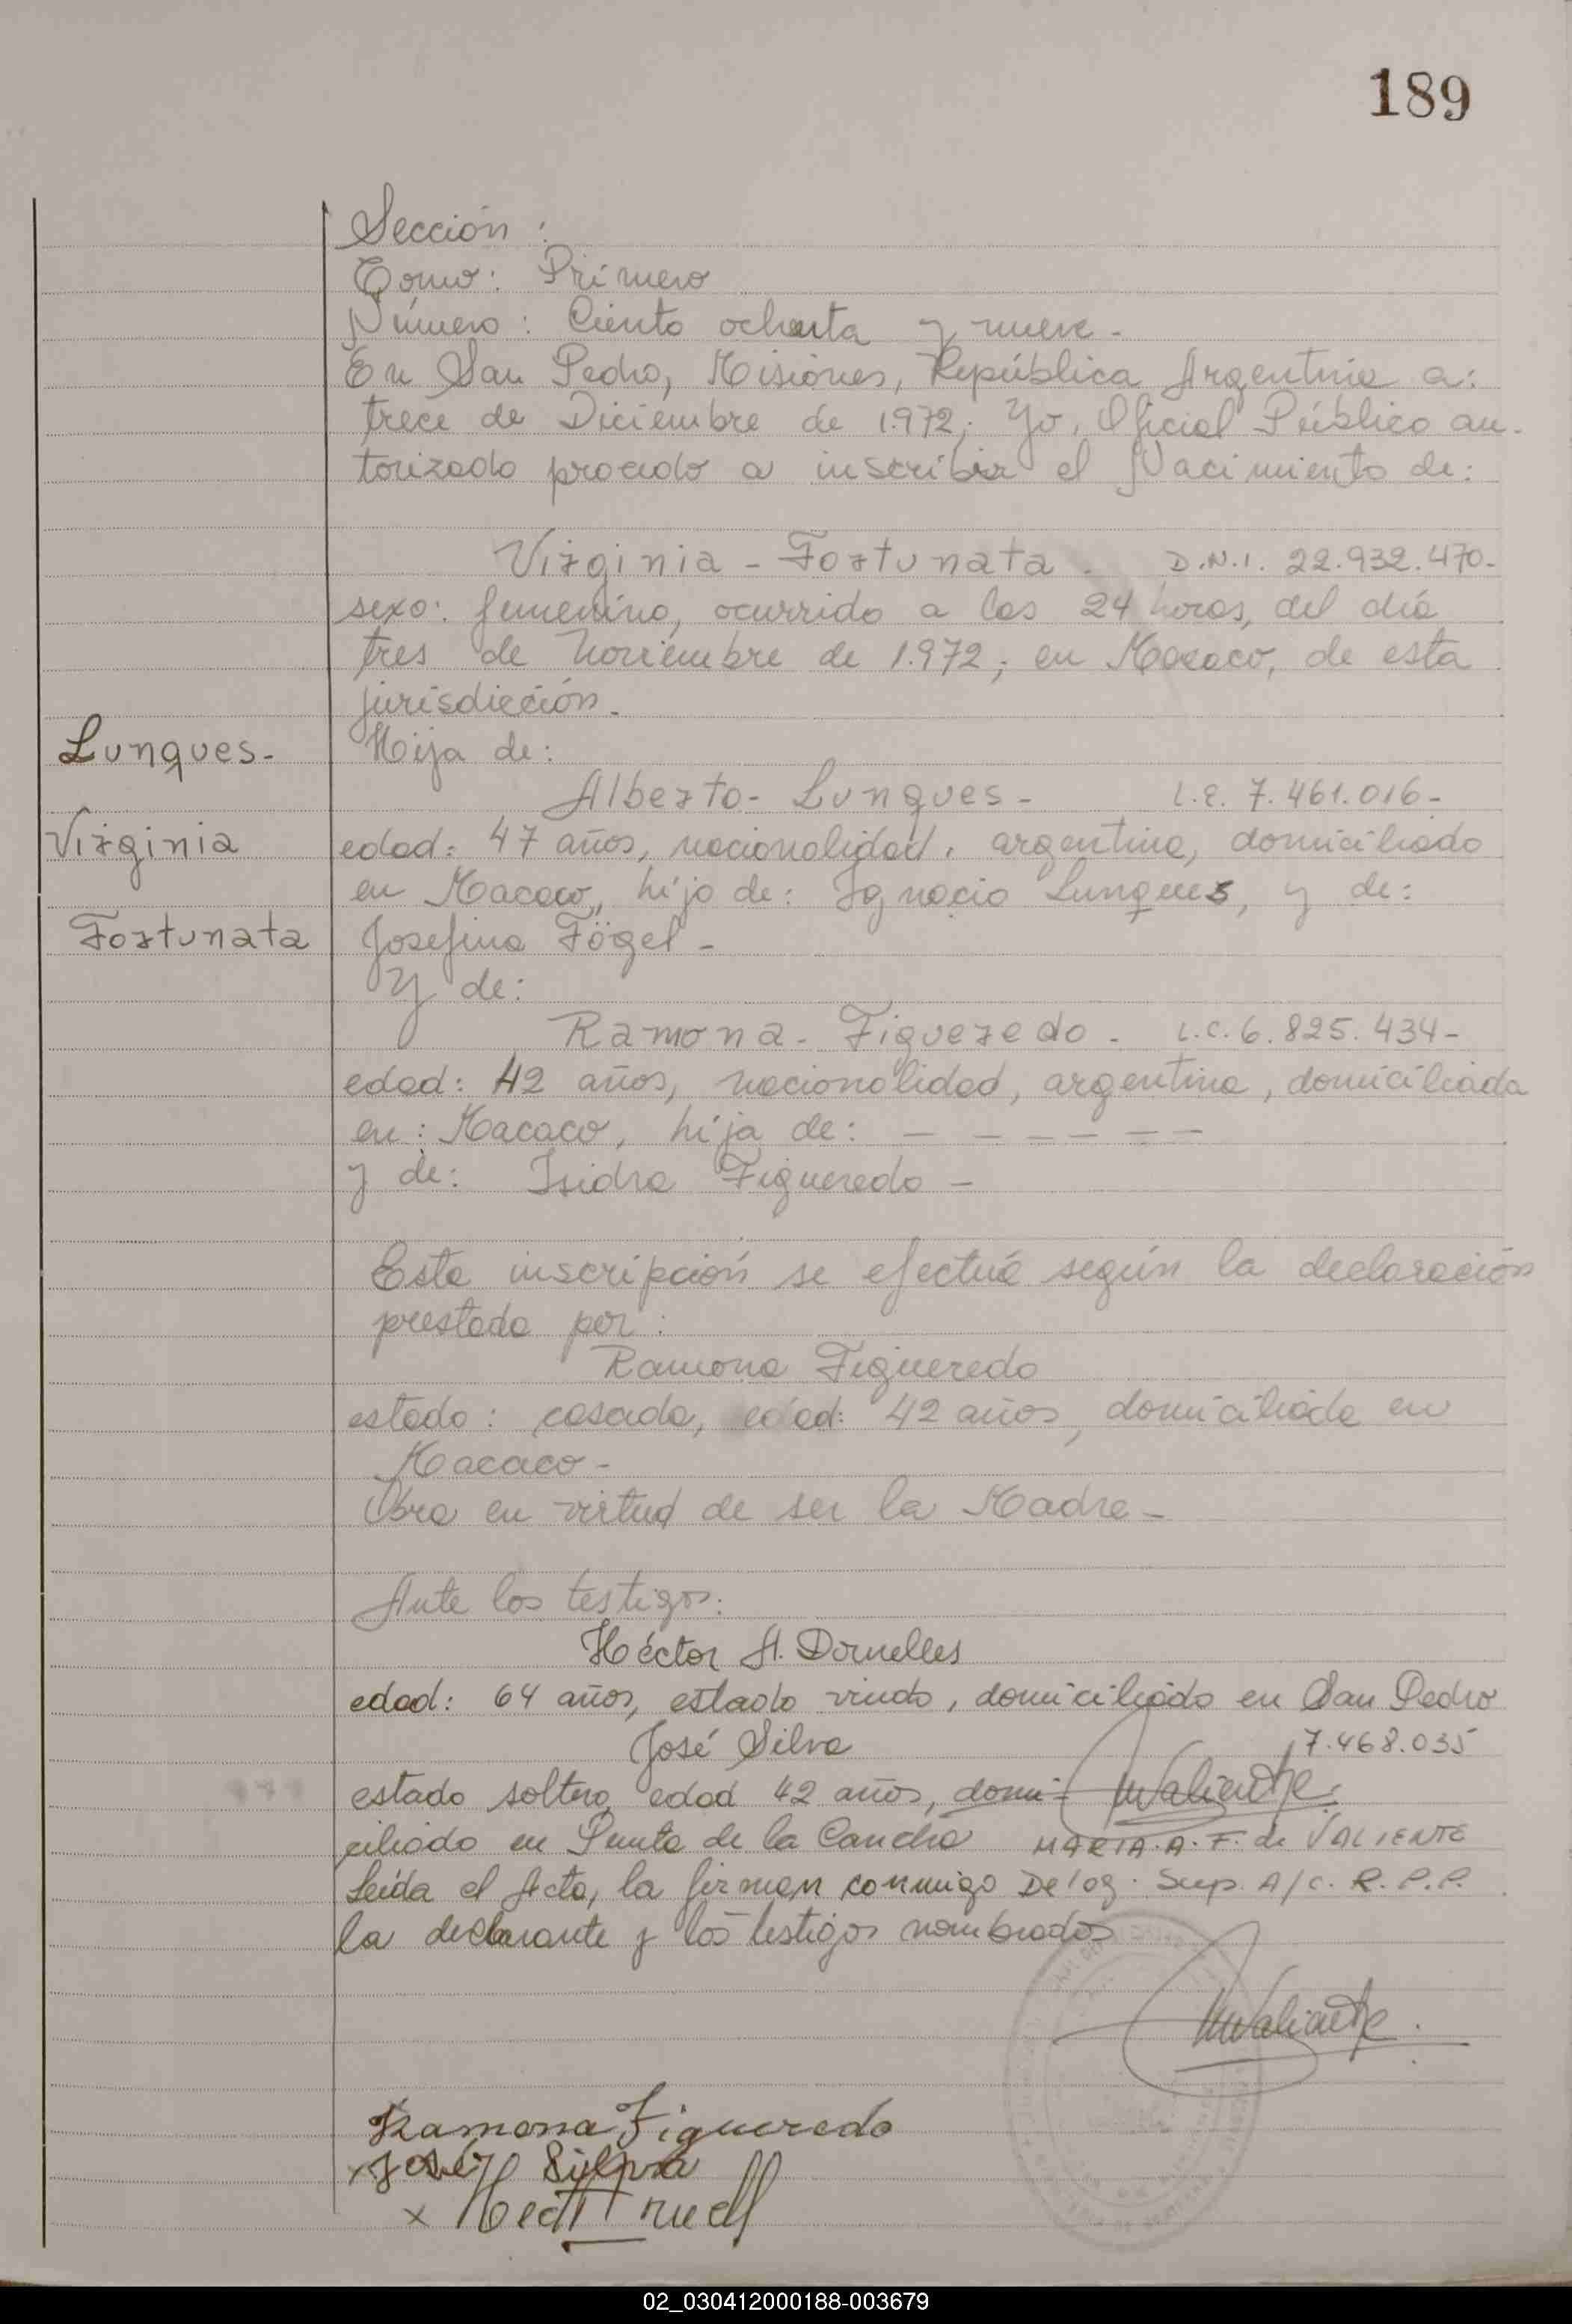 189
Sección :
Tomo: Primero
Número: Ciento ochenta y nueve -
En San Pedro, Misiones, República Argentina a:
trece de Diciembre de 1.972; Yo, Oficial Público au-
torizado procedo a inscribir el Nacimiento de:
Virginia - Fortunata - D.N.I. 22.932.470-
sexo: femenino, ocurrido a las 24 horas, del día
tres de Noviembre de 1.972; en Macaco, de esta
jurisdicción.
Lunques-
Hija de:
Alberto - Lunques - L.E. 7.461.016-
Virginia
edad: 47 años, nacionalidad, argentina, domiciliado
en Macaco, hijo de: Ignacio Lunques, y de:
Fortunata
Josefina Fögel -
Y de:
Ramona - Figueredo - L.C. 6.825.434-
edad: 42 años, nacionalidad, argentina, domiciliada
en: Macaco, hija de: — — — — — —
y de: Isidra Figueredo -
Esta inscripción se efectuá según la declaración
prestada por:
Ramona Figueredo
estado: casada, edad: 42 años, domiciliada en
Macaco -
Obra en virtud de ser la Madre -
Ante los testigos:
Héctor A. Dornelles
edad: 64 años, estado viudo, domiciliado en San Pedro
José Silva 7.468.035
estado soltero, edad 42 años, domi- MValiente
ciliado en Punta de la Cancha MARTA. A. F. de VALIENTE
Leída el Acta, la firman conmigo Deleg. Sup. A/C. R.P.P.
la declarante y los testigos nombrados
MValiente.
Ramona Figueredo
x José Silva
02_030412000188-003679